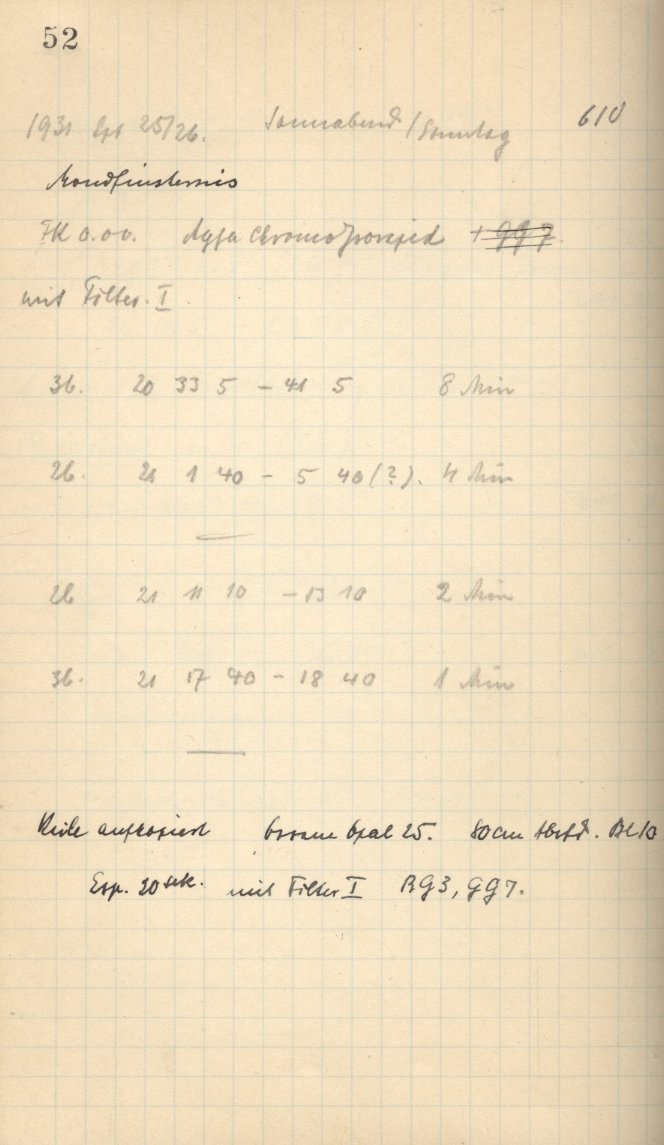 52
1931 Spt 25/26. Sonnabend/Sonntag 610
Mondfinsternis
FK 0.00. Agfa Chromo Isorapid + GG 7.
mit Filter. I.
3b. 20 33 5 – 41 5 8 Min
2b. 21 1 40 – 5 40 (?). 4 Min
2b 21 11 10 – 13 10 2 Min
3b. 21 17 40 – 18 40 1 Min
Keile aufkopiert Osram Opal 25. 80cm Abstd. Bl 10
Exp. 20 sek. mit Filter I RG3, GG7.